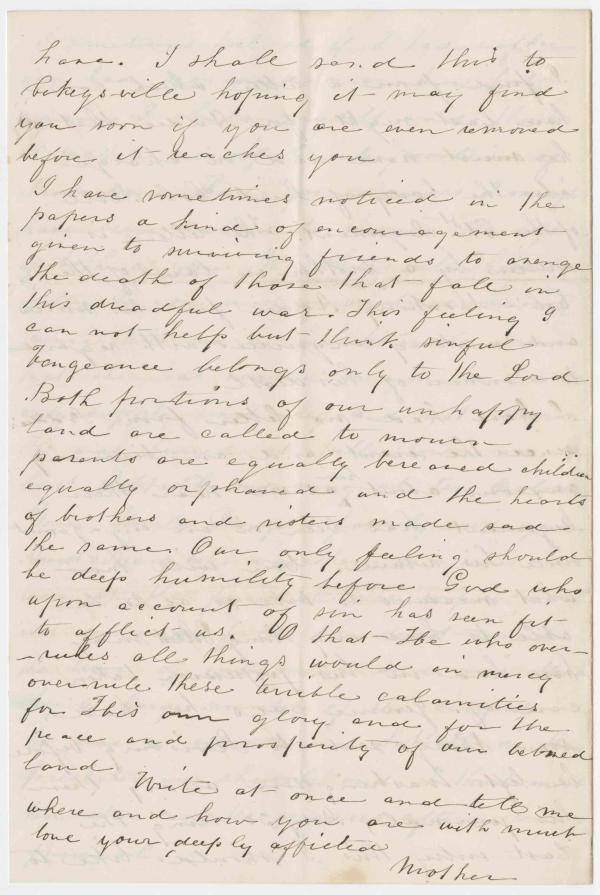 have. I shall send this to
Cokeysville hoping it may find
you soon if you are even removed
before it reaches you
I have sometimes noticed in the
papers a kind of encouragement
given to surviving friends to avenge
the death of those that fall in
this dreadful war. This feeling I
can not help but think sinful
Vengeance belongs only to the Lord
Both portions of our unhappy
land are called to mourn
parents are equally bereaved children
equally orphaned and the hearts
of brothers and sisters made sad
the same. Our only feeling should
be deep humility before God who
upon account of sin has seen fit
to afflict us. O that He who over-
-rules all things would in mercy
overrule these terrible calamities
for His own glory and for the
peace and prosperity of our beloved
land
Write at once and tell me
where and how you are with much
love your deeply afflicted
Mother